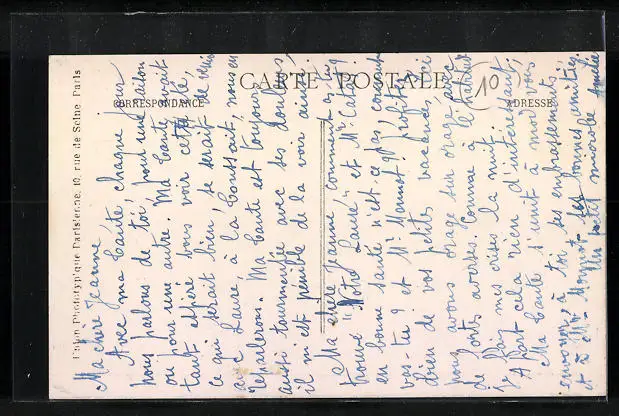 CARTE POSTALE
CORRESPONDANCE
ADRESSE
10
Union Phototypique Parisienne, 10, rue de Seine Paris
Ma chère Jeanne,
Avec ma Tante chaque jour
nous parlons de toi, pour une raison
ou pour une autre. Ma Tante avait
tant espéré vous voir cette été,
ce qui serait bien, se serait de venir
avec Laure à la Toussaint, nous en
reparlerons. Ma Tante est toujours
aussi tourmentée avec ses douleurs
il m'est pénible de la voir ainsi.
Ma chère Jeanne comment as-tu
trouvé Notre Laure et Mr
en bonne santé n'est ce pas, comment
vas-tu ? et Mr Monnot ? Profitez
bien de vos petites vacances, ici
nous avons orage sur orage avec
de forts averses. Comme à l'habitude
je fais mes crises la nuit.
A part cela rien d'intéressant,
Ma Tante s'unit à moi pour vous
envoyer, à toi ses embrassements
et à Mr Monnot ses bonnes amitiés.
Un petit microbe Amélie